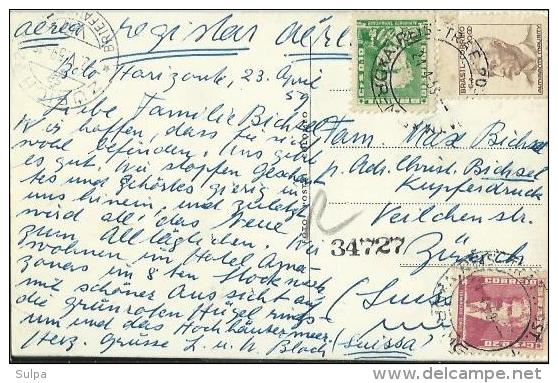 aérea registar aérea
Belo Horizonte, 23. April
59
Liebe Familie Bichsel
Wir hoffen, dass Sie sich
wohl befinden. Uns geht
es gut. Wir stopfen Geschau-
tes und Gehörtes gierig in
uns hinein, und zuletzt
wird all' das Neue
zum Alltäglichen. Wir
wohnen im Hotel Ama-
zonas im 8ten Stockwerk
mit schöner Aussicht auf
die grünroten Hügel rings-
um und das Hochhäusermeer.
Herz. Grüsse L. u. H. Bloch
Fam Max Bichsel
p. Adr. Christ. Bichsel
Kupferdruck
Veilchenstr.
34727
Zürich
(Suisse)
(Suissa)
FOTO POSTAL COLOMBO
BRASIL CORREIO
CORREIO
Cr$ 0,20
BRIEFAU
Sulpa
delcampe.net